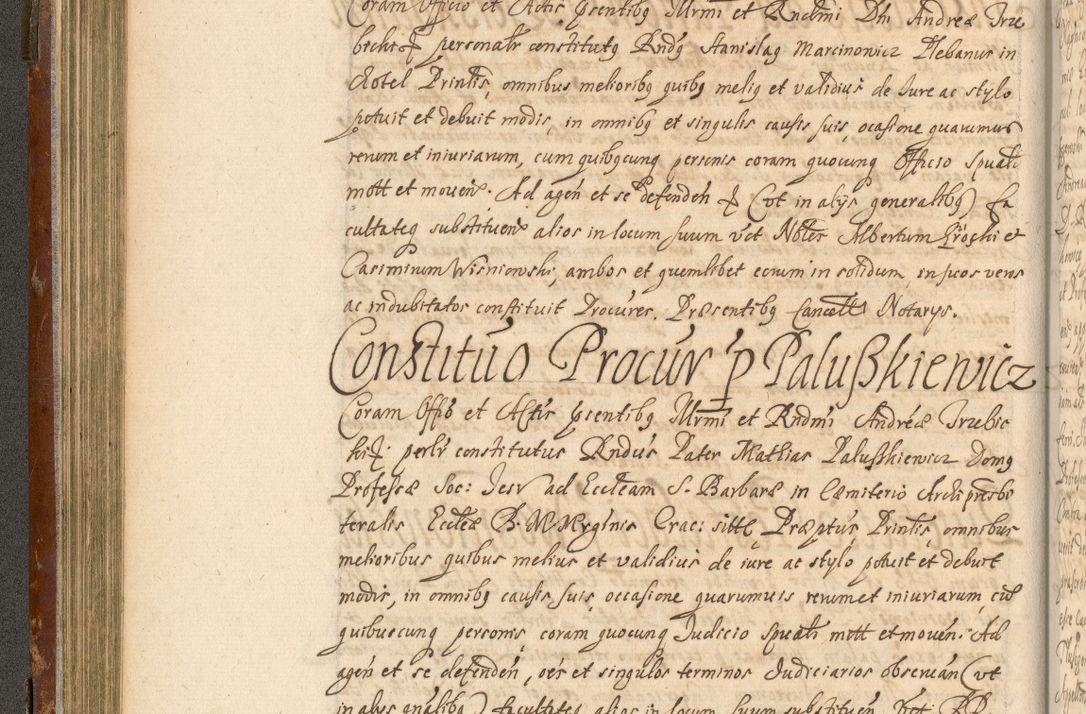 Coram Officio et Actis psentibq Illrmi et Rndmi Dni Andreæ Trze
bicki personalr constitutq Rndq Stanislaq Marcinowicz Plebanus in
Kotel Prinlis, omnibus melioribq quibq meliq et validius de Iure ac stylo
potuit et debuit modis, in omnibq et singulis causis suis, ocasione quarumuis
rerum et iniuriarum, cum quibqcunq personis coram quocunq Officio Spuali
mott et mouens. Ad agen et se defenden (vt in alijs generalibq) fa
cultateq substituens alios in locum suum vct Nobles Albertum et
Casimirum Wisniowski, ambos et quemlibet eorum in solidum, in suos veros
ac indubitatos constituit Procures. Præsentibq Cancell Notarys.
Constitúo Procúr p Palußkiewicz
Coram Offio et Actis psentibq Illrmi et Rndmi Andréæ Trzebic
ki perlr constitutus Rndus Pater Mathias Palußkiewicz Domq
Professæ Soc: Iesv ad Eccleam S. Barbaræ in Cæmiterio Archipresbi
teralis Eccleæ B. M. Vrginis Crac: sittę Præptus Prinlis, omnibus
melioribus quibus melius et validius de iure ac stylo potuit et debuit
modis, in omnibq causis suis, occasione quarumuis rerum et iniuriarum, cũ
quibuscunq personis coram quocunq Iudicio Spuali mott et mouen. Ad
agen et se defenden, oes et singulos terminos Iudiciarios obseruan (vt
in alys gnalibq) facultateq alios in locum suum substituen Vct RD